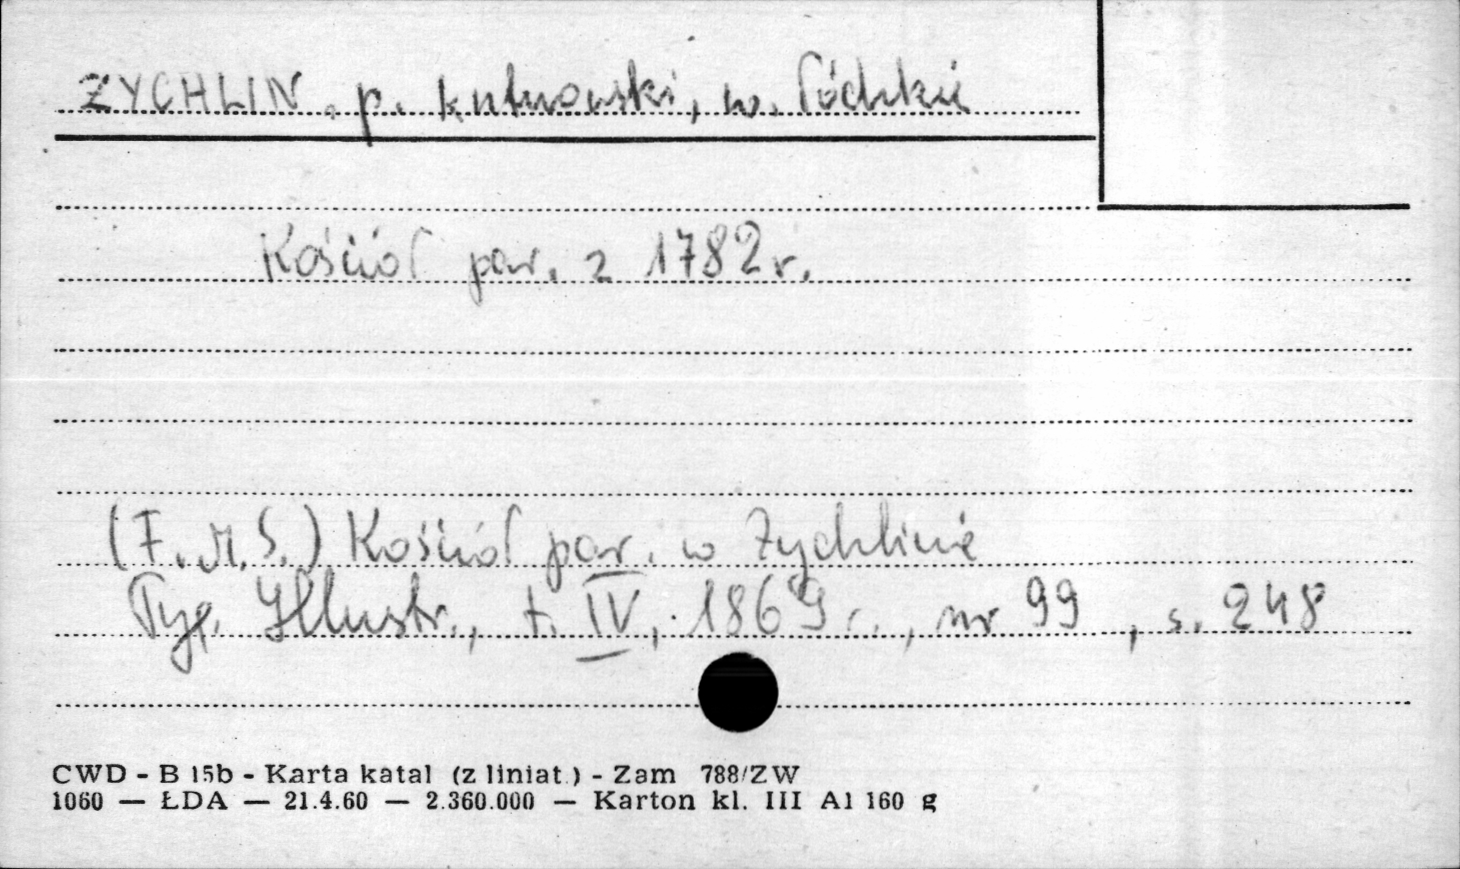 ŻYCHLIN, p. kutnowski, w. łódzkie
Kościół par. z 1782 r.
(F. M. S.) Kościół par. w Żychlinie
Tyg. Illustr., t. IV, 1869 r., nr 99, s. 248
CWD - B 15b - Karta katal (z liniat.) - Zam 788/ZW
1060 — ŁDA — 21.4.60 — 2.360.000 — Karton kl. III A1 160 g